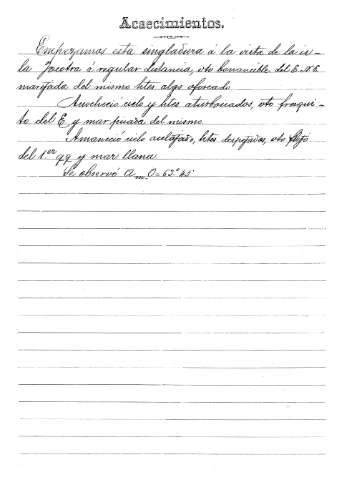 Acaecimientos.
Empezamos esta singladura á la vista de la is-
la Socotra á regular distancia, vto bonancible del E.N.E.
marejada del mismo htes algo
Anocheció cielo y htes aturbonados, vto fresqui-
to del E y mar picada del mismo
Amaneció cielo acelajado, htes despejados, vto flojo
del 1er qq y mar llana
Se observó Am O = 62°